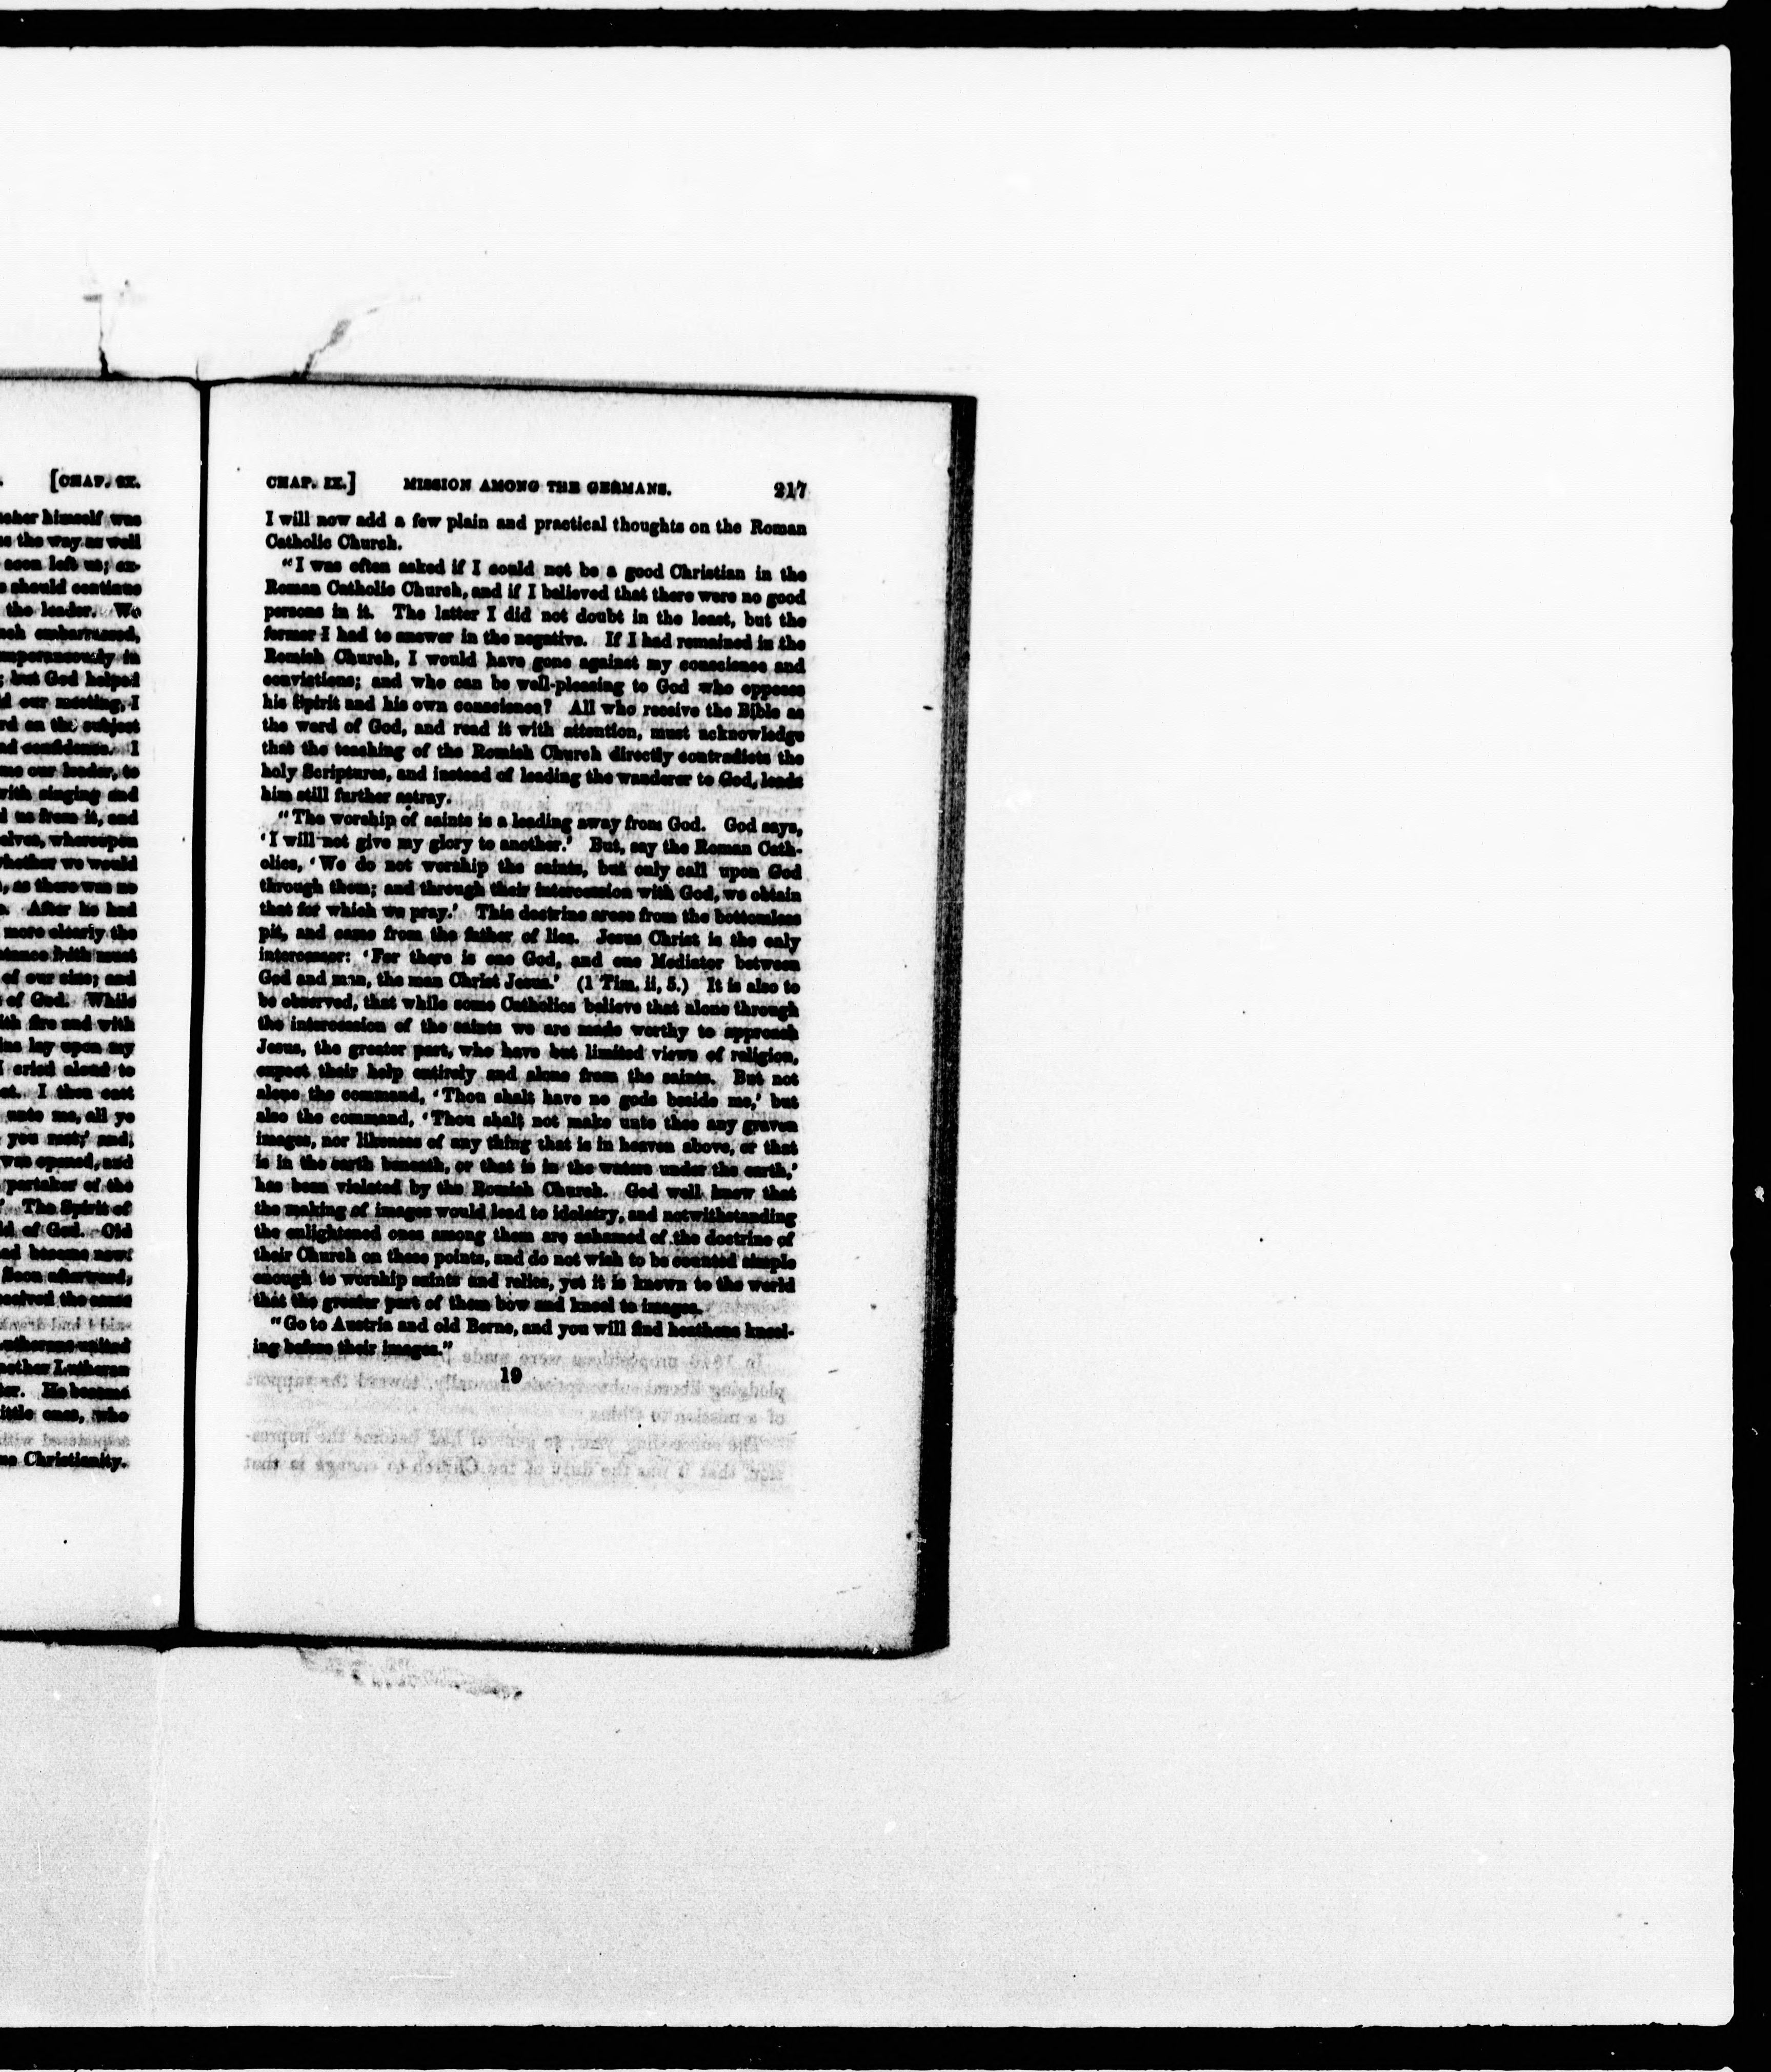 [CHAP. IX.
himself was
the way as well
soon left us; ex-
should continue
the leader. We
embarrassed,
in
; but God helped
our meeting, I
on the subject
confidence. I
our leader, to
with singing and
us from it, and
whereupon
whether we would
, as there was no
After he had
more clearly the
faith must
of our sins; and
of God. While
fire and with
lay upon my
cried aloud to
I then cast
unto me, all ye
you rest;' and
was opened, and
partaker of the
The Spirit of
of God. Old
become new!
Soon afterward,
the same
united
another Lutheran
He became
little ones, who
Christianity.
CHAP. IX.] MISSION AMONG THE GERMANS. 217
I will now add a few plain and practical thoughts on the Roman
Catholic Church.
"I was often asked if I could not be a good Christian in the
Roman Catholic Church, and if I believed that there were no good
persons in it. The latter I did not doubt in the least, but the
former I had to answer in the negative. If I had remained in the
Romish Church, I would have gone against my conscience and
convictions; and who can be well-pleasing to God who opposes
his Spirit and his own conscience? All who receive the Bible as
the word of God, and read it with attention, must acknowledge
that the teaching of the Romish Church directly contradicts the
holy Scriptures, and instead of leading the wanderer to God, leads
him still further astray.
"The worship of saints is a leading away from God. God says,
'I will not give my glory to another.' But, say the Roman Cath-
olics, 'We do not worship the saints, but only call upon God
through them; and through their intercession with God, we obtain
that for which we pray.' This doctrine arose from the bottomless
pit, and came from the father of lies. Jesus Christ is the only
intercessor: 'For there is one God, and one Mediator between
God and man, the man Christ Jesus.' (1 Tim. ii, 5.) It is also to
be observed, that while some Catholics believe that alone through
the intercession of the saints we are made worthy to approach
Jesus, the greater part, who have but limited views of religion,
expect their help entirely and alone from the saints. But not
alone the command, 'Thou shalt have no gods beside me,' but
also the command, 'Thou shalt not make unto thee any graven
images, nor likeness of any thing that is in heaven above, or that
is in the earth beneath, or that is in the waters under the earth,'
has been violated by the Romish Church. God well knew that
the making of images would lead to idolatry, and notwithstanding
the enlightened ones among them are ashamed of the doctrine of
their Church on these points, and do not wish to be counted simple
enough to worship saints and relics, yet it is known to the world
that the greater part of them bow and kneel to images.
"Go to Austria and old Berne, and you will find heathens kneel-
ing before their images."
19